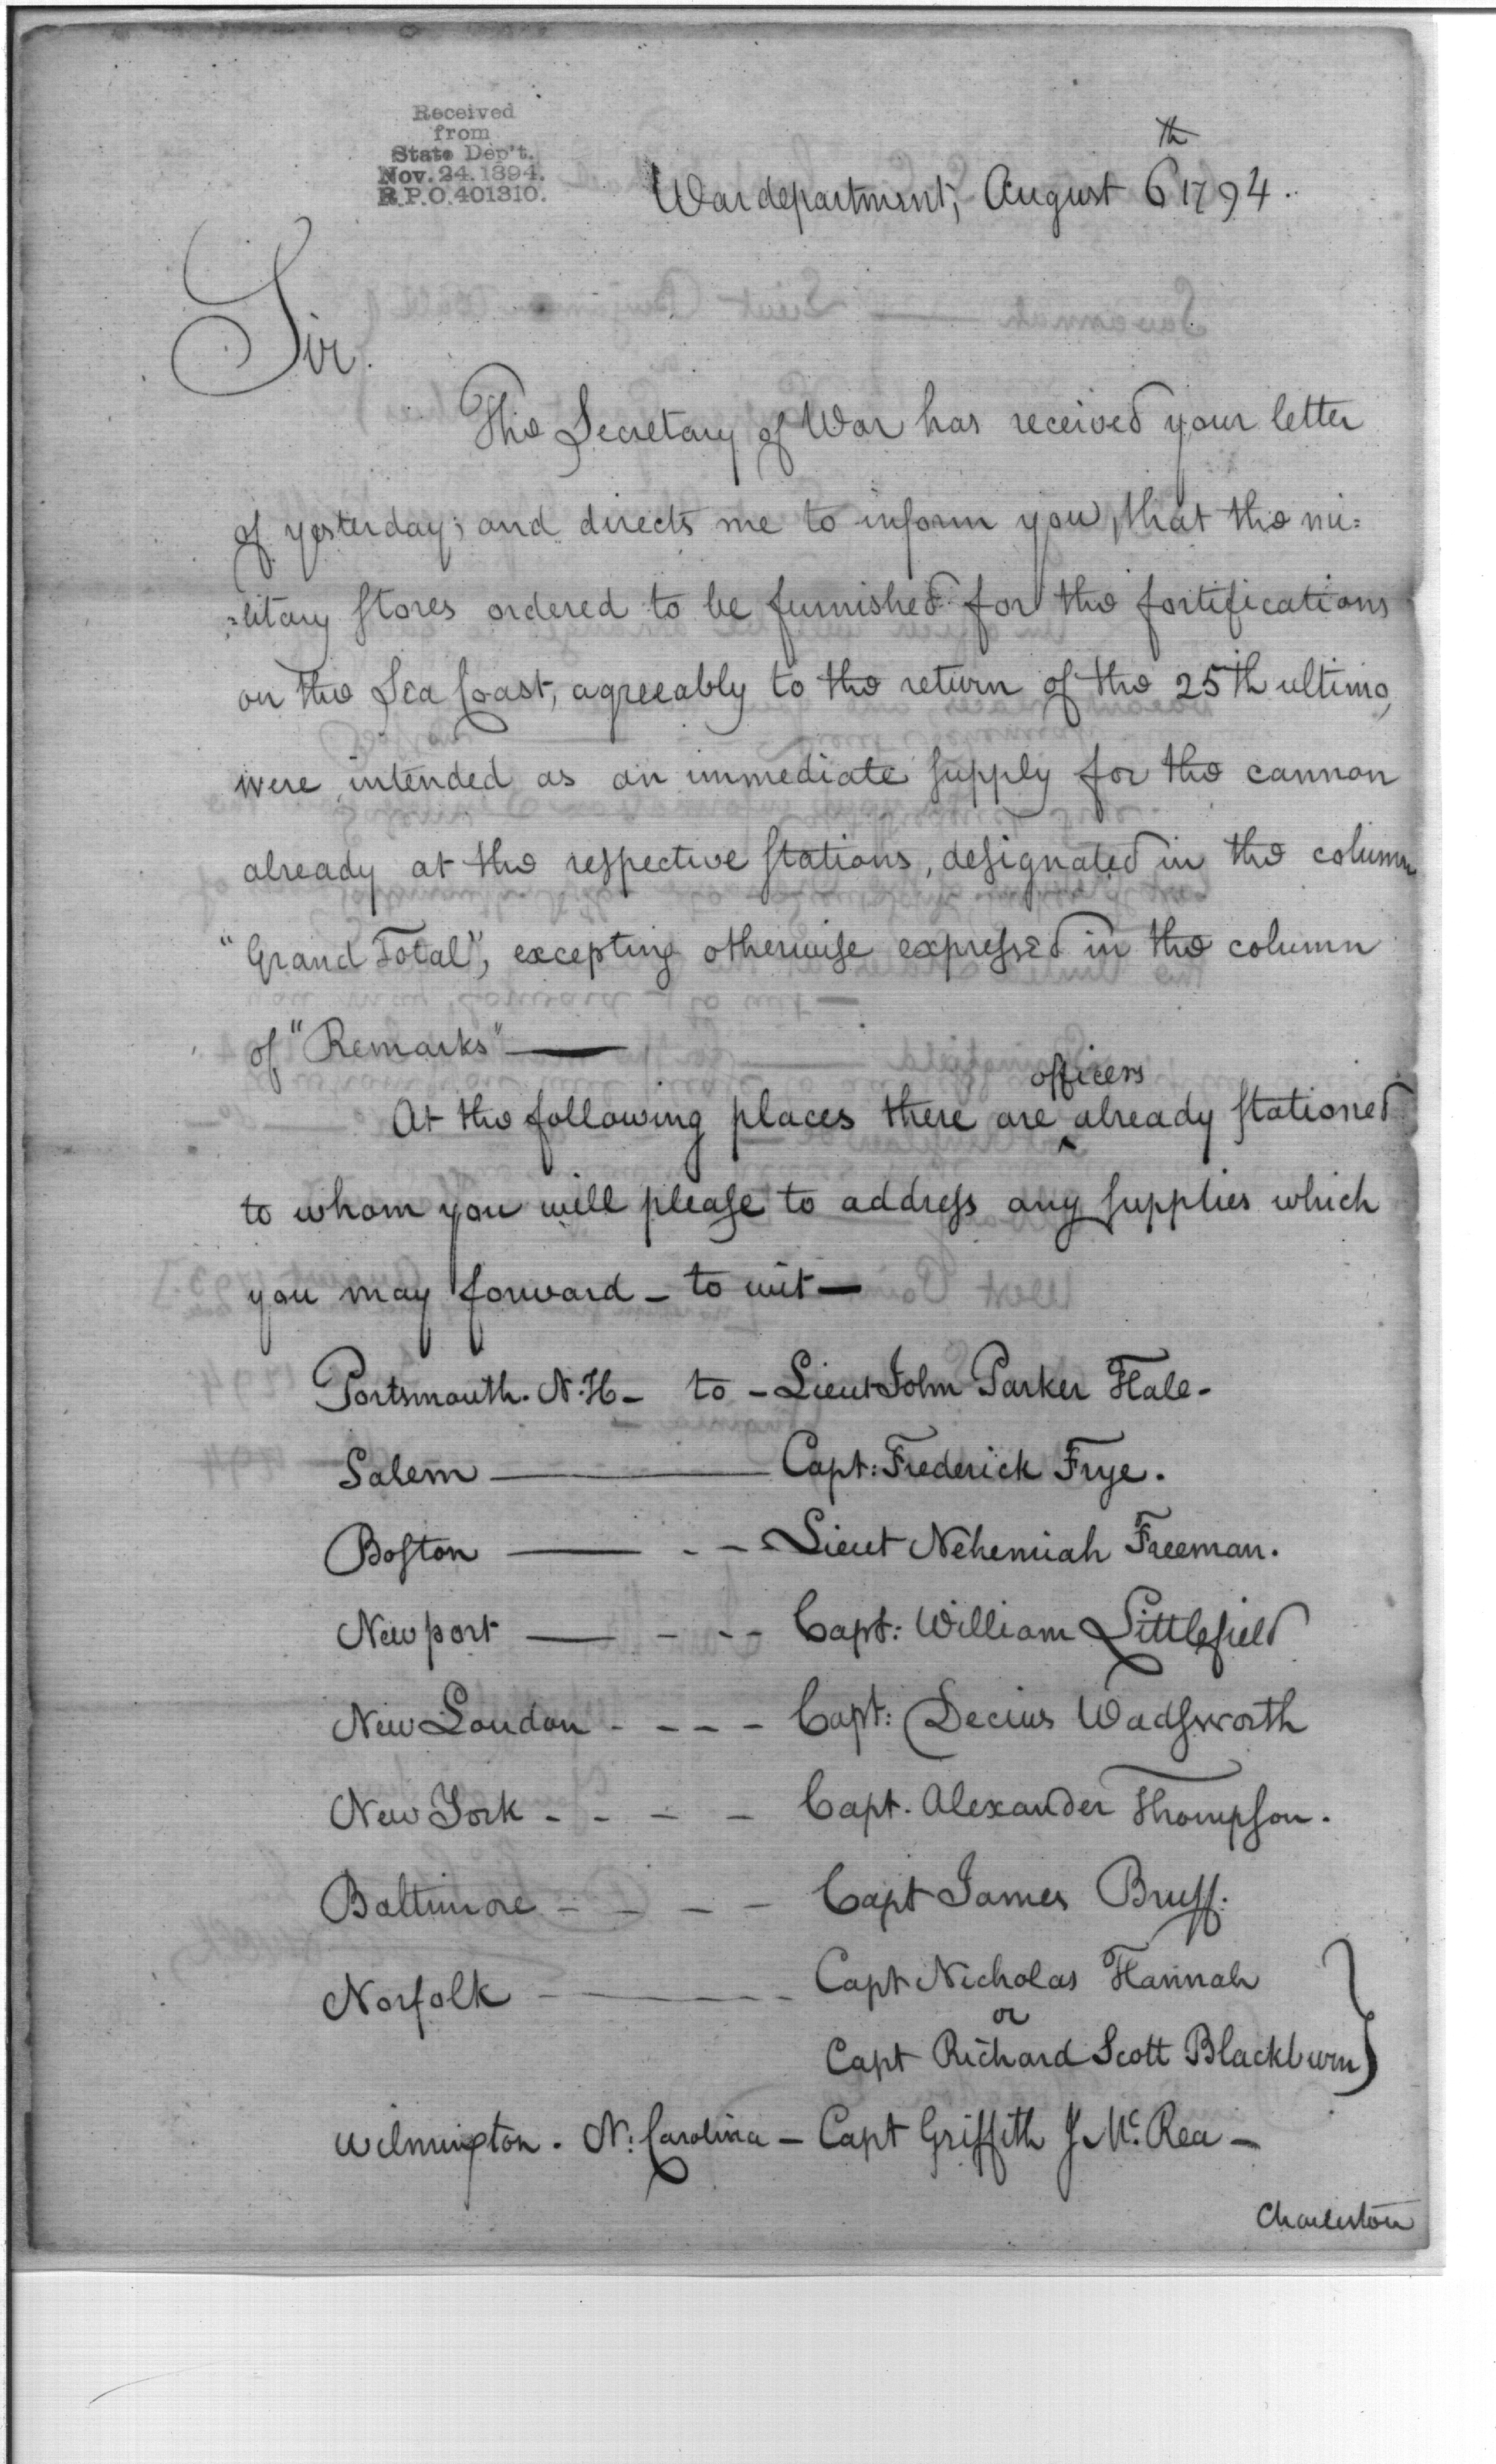 Received
from
State Dep't.
Nov. 24. 1894.
R.P.O. 401310.
War department, August 6th 1794.
Sir.
The Secretary of War has received your letter
of yesterday; and directs me to inform you, that the mi=
=litary stores ordered to be furnished for the fortifications
on the Sea Coast, agreeably to the return of the 25th ultimo,
were intended as an immediate supply for the cannon
already at the respective stations, designated in the column
"Grand Total", excepting otherwise expressed in the column
of "Remarks" —
At the following places there are officers already stationed
to whom you will please to address any supplies which
you may forward – to wit —
Portsmouth. N.H – to – Lieut John Parker Hale –
Salem — Capt: Frederick Frye.
Boston — - – Lieut Nehemiah Freeman.
Newport — - - - Capt: William Littlefield
New London - - - - Capt: Decius Wadsworth
New York - - - - Capt. Alexander Thompson.
Baltimore - - - - Capt James Bruff.
Norfolk - — - - - Capt Nicholas Hannah
or
Capt Richard Scott Blackburn }
Wilmington. N: Carolina – Capt Griffith J McRea –
Charleston